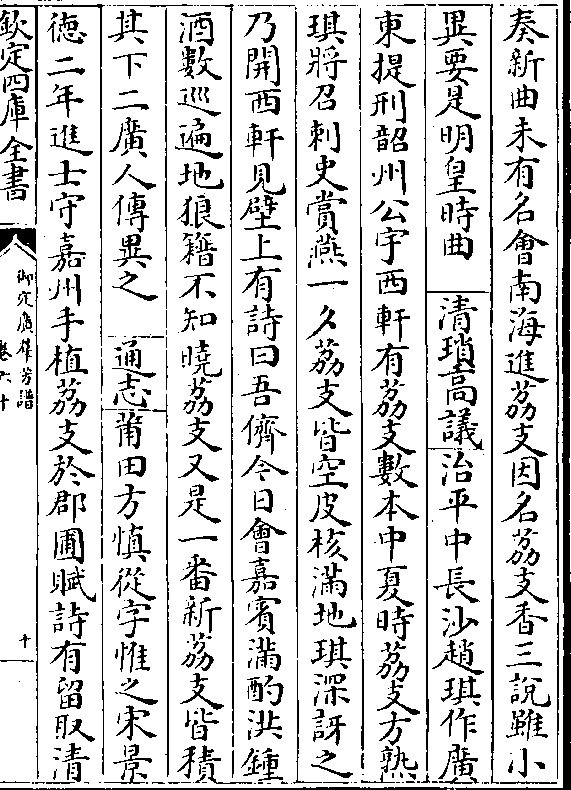 奏新曲未有名會南海進荔支因名荔支香三說雖小
異要是明皇時曲　清瑣高議治平中長沙趙琪作廣
東提刑韶州公宇西軒有荔支數本中夏時荔支方熟
琪將召刺史賞燕一夕荔支皆空皮核滿地琪深訝之
乃開西軒見壁上有詩曰吾儕今日會嘉賓滿酌洪鍾
酒數巡遍地狼籍不知曉荔支又是一番新荔支皆積
其下二廣人傳異之　通志莆田方慎從字惟之宋景
徳二年進士守嘉州手植荔支於郡圃賦詩有留取清
欽定四庫全書
御定廣群芳譜
卷六十
十